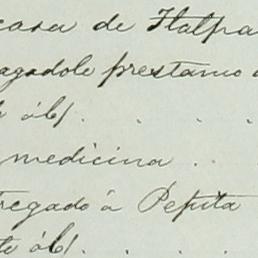 casa de Tlalpa
agadole prestamo
ób/. . . .
medicina . .
tregado á Pepita
te ób/. . . .